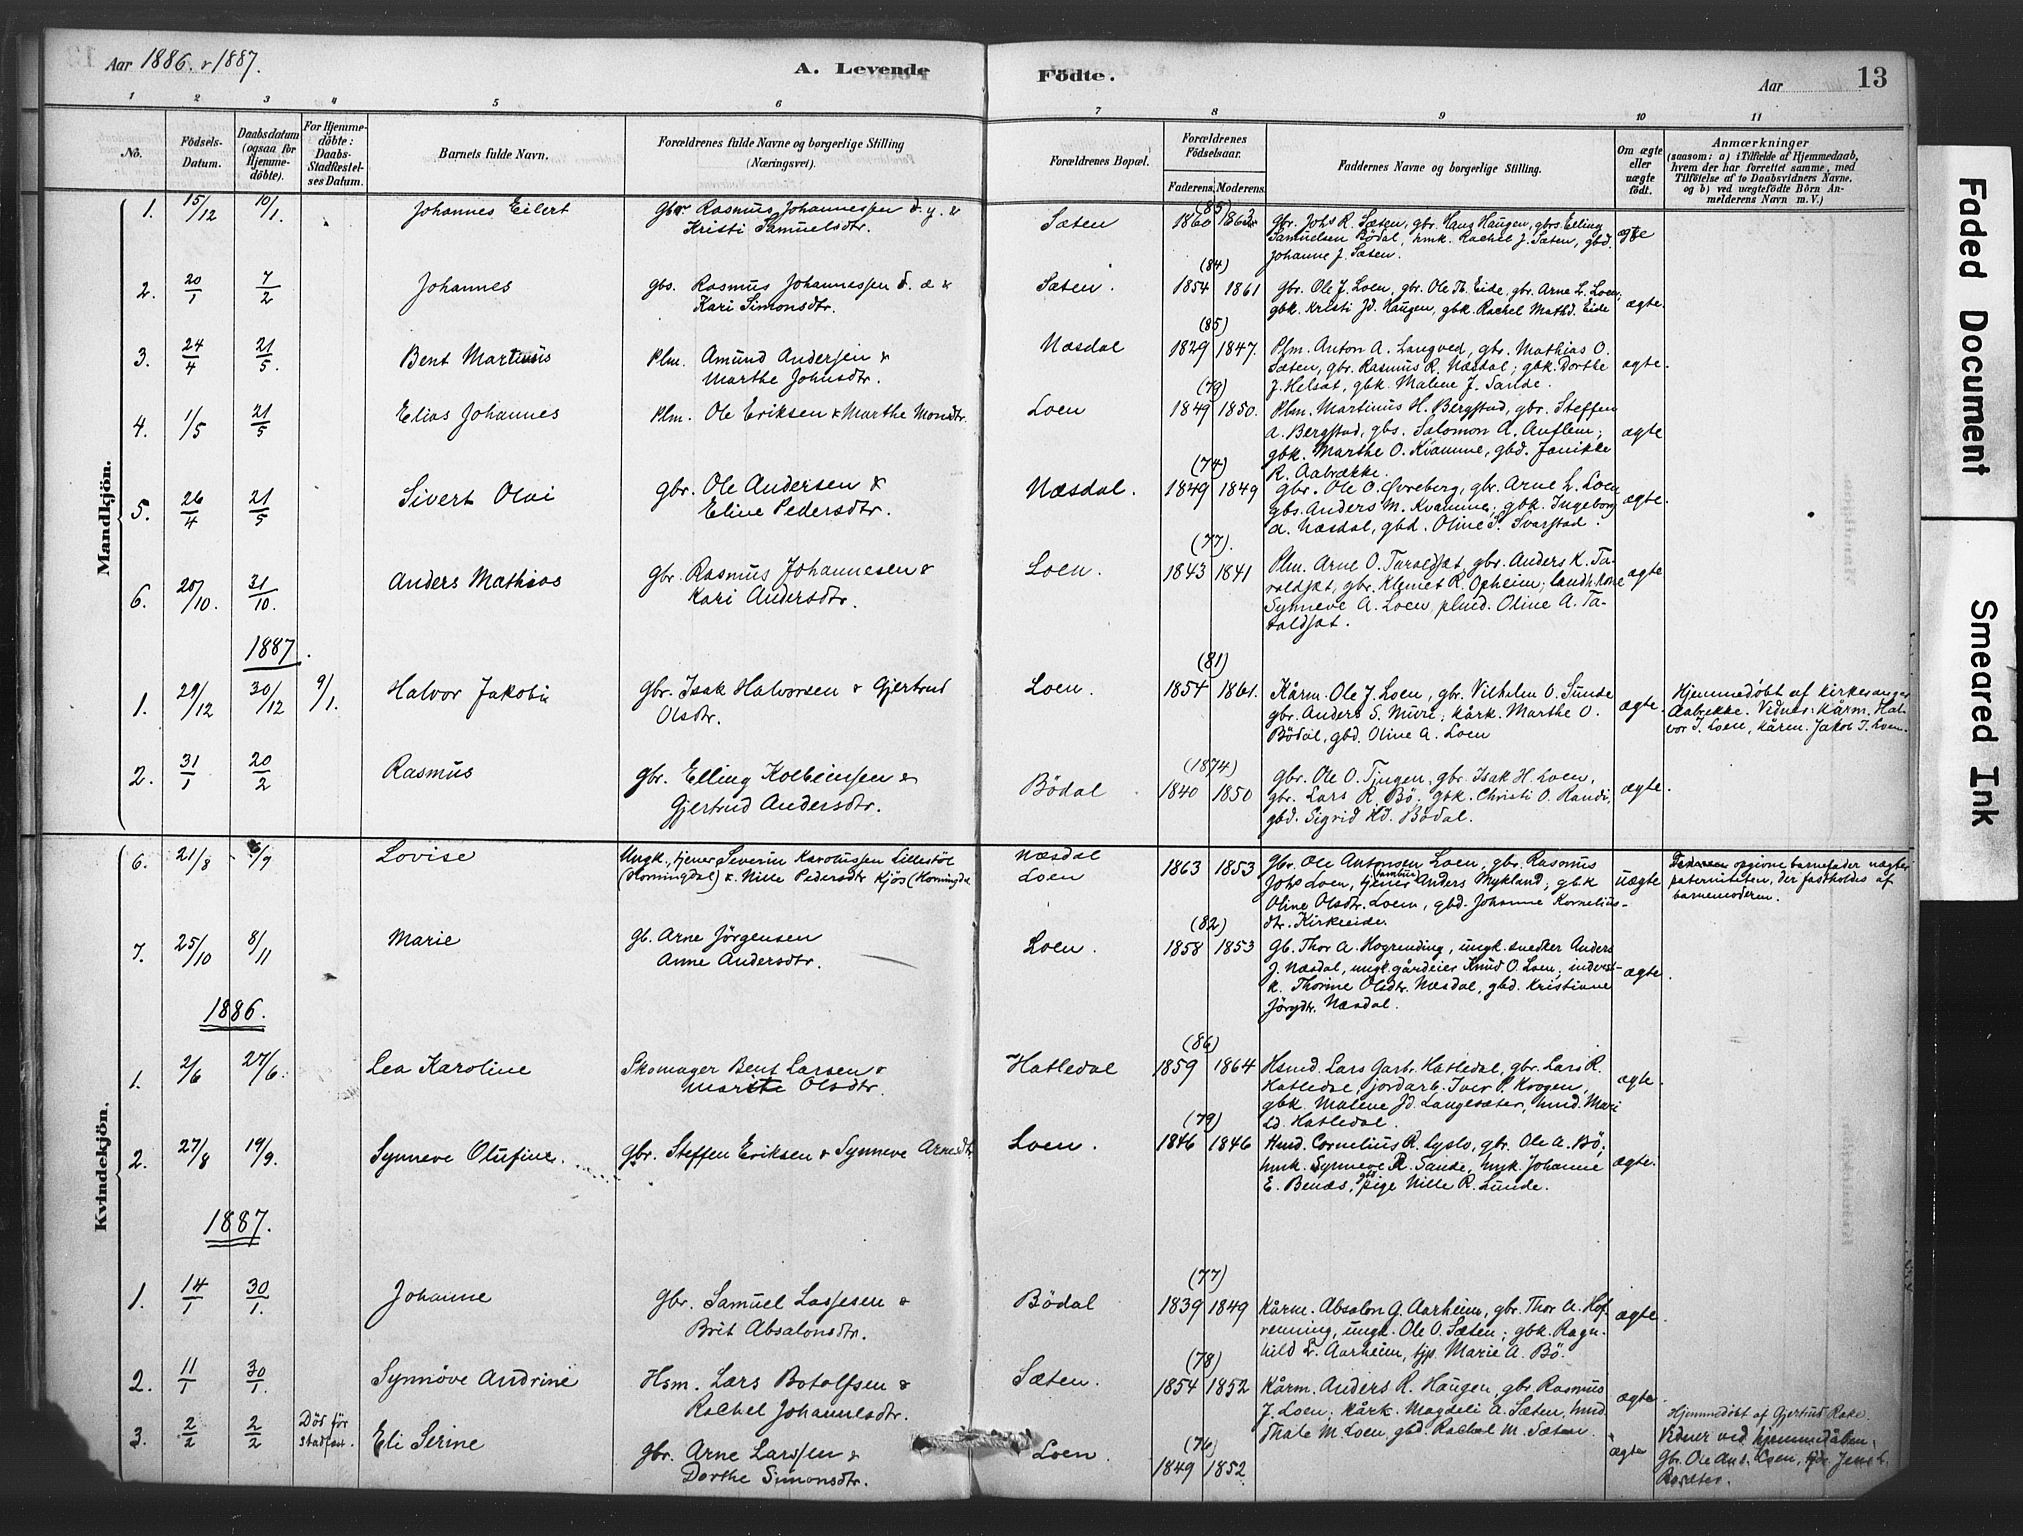 Aar 1886 & 1887.
A. Levende
Födte.
Aar
13
1
2
3
4
5
6
7
8
9
10
11
No.
Födsels-
Datum.
Daabsdatum
(ogsaa for
Hjemme-
döbte).
For Hjemme-
döbte:
Daabs-
Stadfæstel-
ses Datum.
Barnets fulde Navn.
Forældrenes fulde Navne og borgerlige Stilling
(Næringsvei).
Forældrenes Bopæl.
Forældrenes
Födselsaar.
Faderens. Moderens.
Faddernes Navne og borgerlige Stilling.
Om ægte
eller
uægte
födt.
Anmærkninger
(saasom: a) i Tilfælde af Hjemmedaab,
hvem der har forrettet samme, med
Tilföielse af to Daabsvidners Navne,
og b) ved uægtefödte Börn An-
melderens Navn m. V.)
Mandkjön.
1. 15/12 10/1. Johannes Eilert
gbr. Rasmus Johannessen d. y. &
Kristi Samuelsdtr.
Sæten
(85)
1860 1863
gbr. Johs R. Sæten, gbr. Hans Haugen, gbrs. Elling
Samuelsen Bödal, hmk. Rachel J. Sæten, gbd.
Johanne J. Sæten.
ægte
2. 20/1 7/2 Johannes
gbs. Rasmus Johannessen d. æ &
Kari Simonsdtr.
Sæten.
(84)
1854 1861
gbr. Ole J. Loen, gbr. Ole Th. Eide, gbr. Arne L. Loen;
gbk. Kristi Jd. Haugen, gbk. Rachel Mathd. Eide
ægte.
3. 24/4 21/5. Bent Martinus
Plm. Amund Andersen &
Marthe Johnsdtr.
Næsdal
(85)
1829 1847.
Plm. Anton A. Langved, gbr. Mathias O.
Sæten, gbr. Rasmus R. Næsdal; gbk. Dorthe
J. Helsæt, gbk. Malene J. Sande.
ægte.
4. 1/5 21/5 Elias Johannes
Plm. Ole Eriksen & Marthe Monsdtr.
Loen
(79)
1849 1850.
Plm. Martinus H. Bergstad, gbr. Steffen
A. Bergstad, gbs. Salomon A. Auflem;
gbk. Marthe O. Kvamme, gbd. Jonikke
R. Aabrække.
ægte
5. 26/4 21/5 Sivert Olai
gbr. Ole Andersen &
Eline Pedersdtr.
Næsdal.
(74)
1849 1849
gbr. Ole O. Øvreberg, gbr. Arne L. Loen
gbs. Anders M. Kvamme; gbk. Ingeborg
A. Næsdal, gbd. Oline S. Svarstad.
ægte.
6. 20/10. 31/10. Anders Mathias
gbr. Rasmus Johannesen &
Kari Andersdtr.
Loen.
(77).
1843 1841
Plm. Arne O. Taraldset, gbr. Anders K. Ta-
raldset, gbr. Klemet R. Opheim; landh.kone
Synneve A. Loen, plmd. Oline A. Ta-
raldset.
ægte
1887.
1. 29/12 30/12 9/1. Halvor Jakob
gbr. Isak Halvorsen & Gjertrud
Olsdtr.
Loen.
(81)
1854 1861.
Kårm. Ole J. Loen, gbr. Vilhelm O. Sunde
gbr. Anders S. Muri; kårk. Marthe O.
Bödal, gbd. Oline A. Loen
ægte.
Hjemmedöbt af kirkesanger
Aabrekke. Vidner: kårm. Hal-
vor J. Loen, kårm. Jakob J. Loen.
2. 31/1 20/2 Rasmus
gbr. Elling Kolbeinsen &
Gjertrud Andersdtr.
Bödal
(1874)
1840 1850
gbr. Ole O. Tjugen, gbr. Isak H. Loen,
gbr. Lars R. Bö; gbk. Christi O. Randi,
gbd. Sigrid Kd. Bödal.
ægte.
Kvindekjön.
6. 21/8 /9 Lovise
Ungk., tjener Severin Karolussen Lillestöl
(Horningdal) & Nille Pedersdtr Kjös (Horningdal
Næsdal
Loen
1863 1853
gbr. Ole Antonsen Loen, gbr. Rasmus
Johs Loen, tjener Anders Mykland; gbk
Oline Olsdtr. Loen, gbd. Johanne Kornelius-
dtr. Kirkeeide.
uægte
opgivne barnefader nægter
paterniteten, der fastholdes af
barnemoderen.
7. 25/10 8/11 Marie
Gb. Arne Jörgensen
Anne Andersdtr.
Loen.
(82)
1858 1853
Gb. Thor A. Hogrending, ungk. snedker Anders
J. Næsdal, ungk. gårdeier Knud O. Loen; inderst-
k. Thorine Olsdtr. Næsdal, gbd. Kristiane
Jörgdtr. Næsdal.
ægte.
1886.
1. 2/6 27/6. Lea Karoline
Skomager Bent Larsen &
Marite Olsdtr.
Hatledal
(86)
1859 1864
Hsmd. Lars Jarb. Hatledal, gbr. Lars R.
Hatledal, jordarb. Iver P. Krogen,
gbk. Malene Jd. Langesæter, hmd. Mari
Ld. Hatledal.
ægte.
2. 27/8 19/9. Synneve Olufine.
gbr. Steffen Eriksen & Synneve Arnesdtr
Loen.
(79)
1846 1846
Hmd. Cornelius R. Lyslo, gbr. Ole A. Bö;
hmk. Synneve R. Sande, hmk. Johanne
E. Benæs, pige Nille R. Sunde.
ægte.
1887.
1. 14/1 30/1. Johanne
gbr. Samuel Lassesen &
Brit Absalonsdtr.
Bödal
(77)
1839 1849
Kårm. Absalon G. Aarheim, gbr. Thor A. Hof-
renning, ungk. Ole O. Sæten; gbk. Ragn-
hild L. Aarheim, tjp. Marie A. Bö.
ægte.
2. 11/1 30/1. Synnöve Andrine
Hsm. Lars Botolfsen &
Rachel Johannesdtr.
Sæten.
(78)
1854 1852
Kårm. Anders R. Haugen, gbr. Rasmus
J. Loen; kårk. Magdeli A. Sæten, hmd.
Thale M. Loen, gbd. Rachel M. Sæten
ægte.
3. 2/2 2/2 Död för
stadfæst. Eli Serine
gbr. Arne Larssen &
Dorthe Simonsdtr.
Loen.
(76)
1849 1852
ægte
Hjemmedöbt af Gjertrud Rake.
Vidner ved hjemmedåben,
Gbr. Ole Ant. Loen,
Faded Document
Smeared Ink